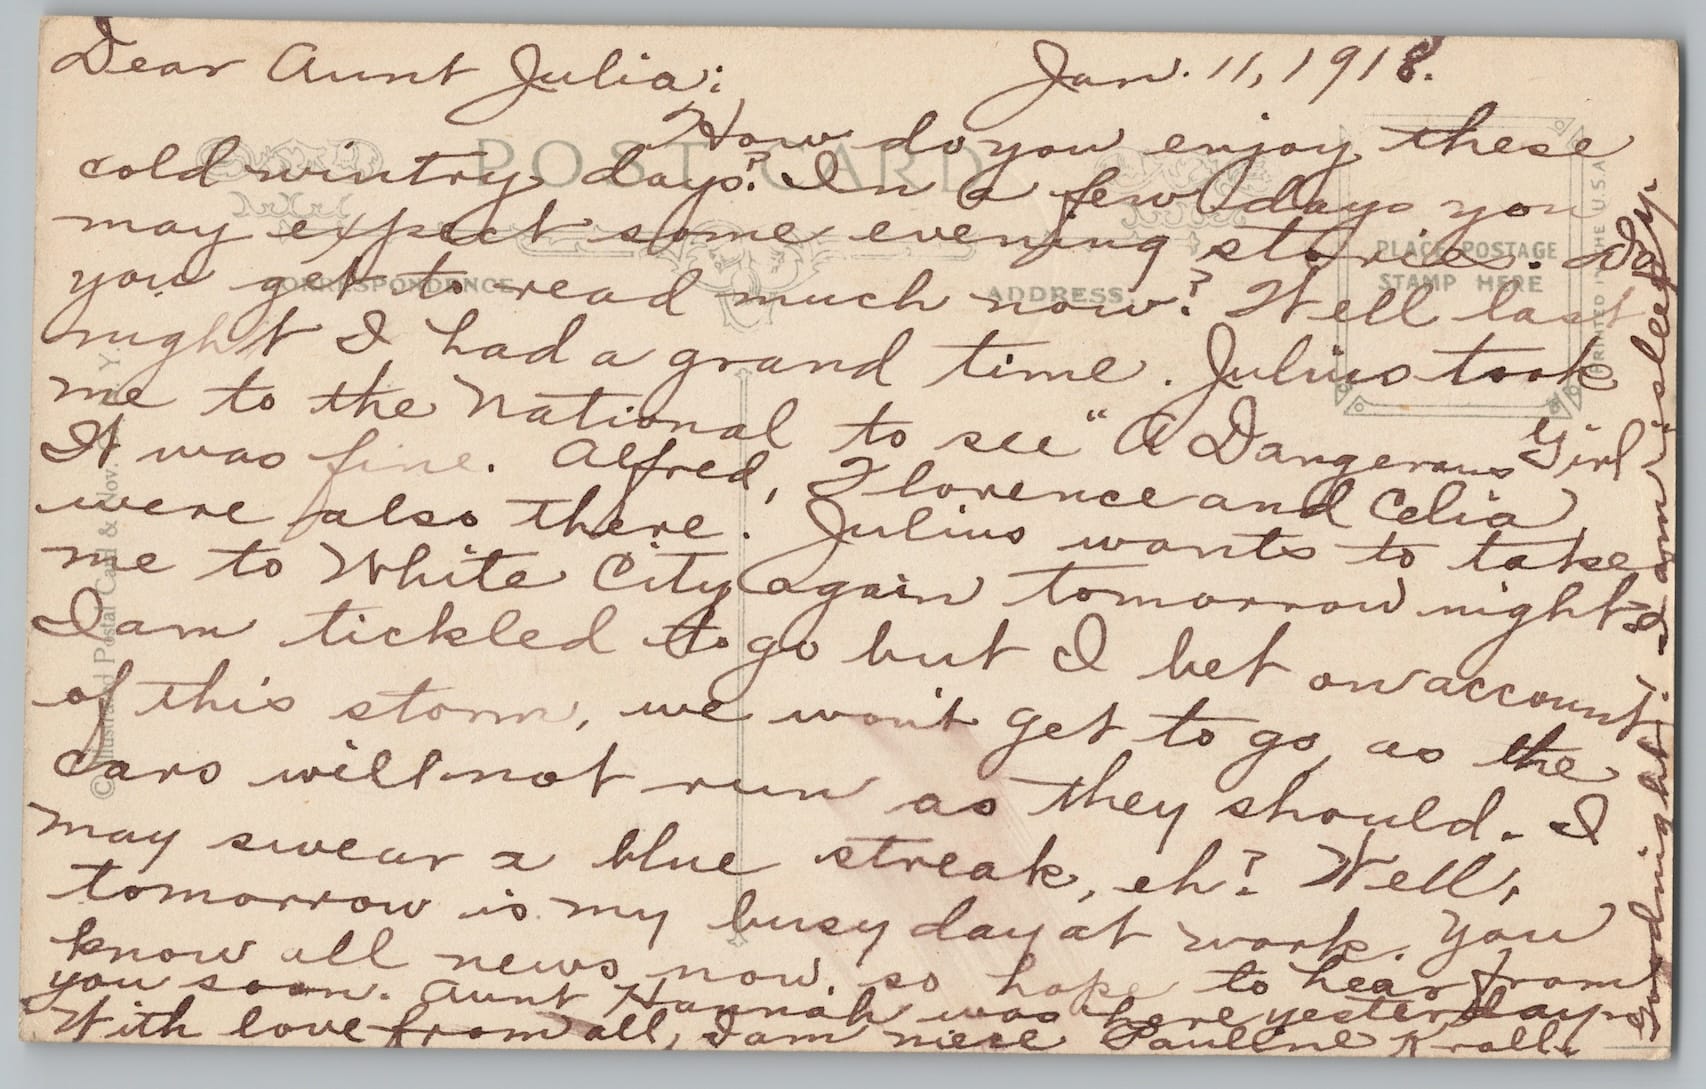 Dear Aunt Julia:
Jan. 11, 1918.
How do you enjoy these
cold wintry days? In a few days you
may expect some evening stories. Do
you get to read much now? Well last
night I had a grand time. Julius took
me to the National to see "A Dangerous Girl
It was fine. Alfred, Florence and Celia,
were also there. Julius wants to take
me to White City again tomorrow night
I am tickled to go but I bet on account
of this storm, we won't get to go, as the
cars will not run as they should. I
may swear a blue streak, eh? Well,
tomorrow is my busy day at work. You
know all news now, so hope to hear from
you soon. Aunt Hannah was here yesterday
With love from all, I am niece Pauline Kroll.
Goodnight! I am sleepy.
POST CARD
CORRESPONDENCE
ADDRESS
PLACE POSTAGE
STAMP HERE
PRINTED IN THE U.S.A.
© Illustrated Postal Card & Nov. N. Y.